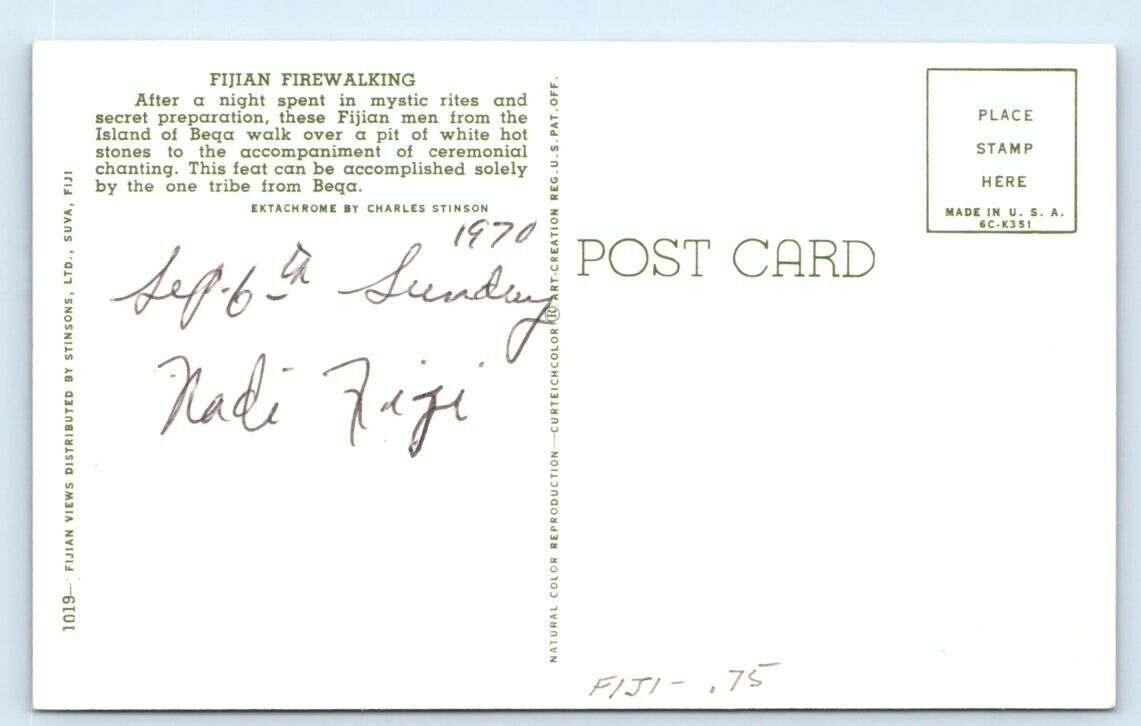 FIJIAN FIREWALKING
After a night spent in mystic rites and
secret preparation, these Fijian men from the
Island of Beqa walk over a pit of white hot
stones to the accompaniment of ceremonial
chanting. This feat can be accomplished solely
by the one tribe from Beqa.
EKTACHROME BY CHARLES STINSON
1970
Sep. 6th Sunday
Nadi Fiji
1019— FIJIAN VIEWS DISTRIBUTED BY STINSONS, LTD., SUVA, FIJI
NATURAL COLOR REPRODUCTION—CURTEICHCOLOR ® ART-CREATION REG. U.S. PAT. OFF.
POST CARD
PLACE
STAMP
HERE
MADE IN U. S. A.
6C-K351
FIJI - .75